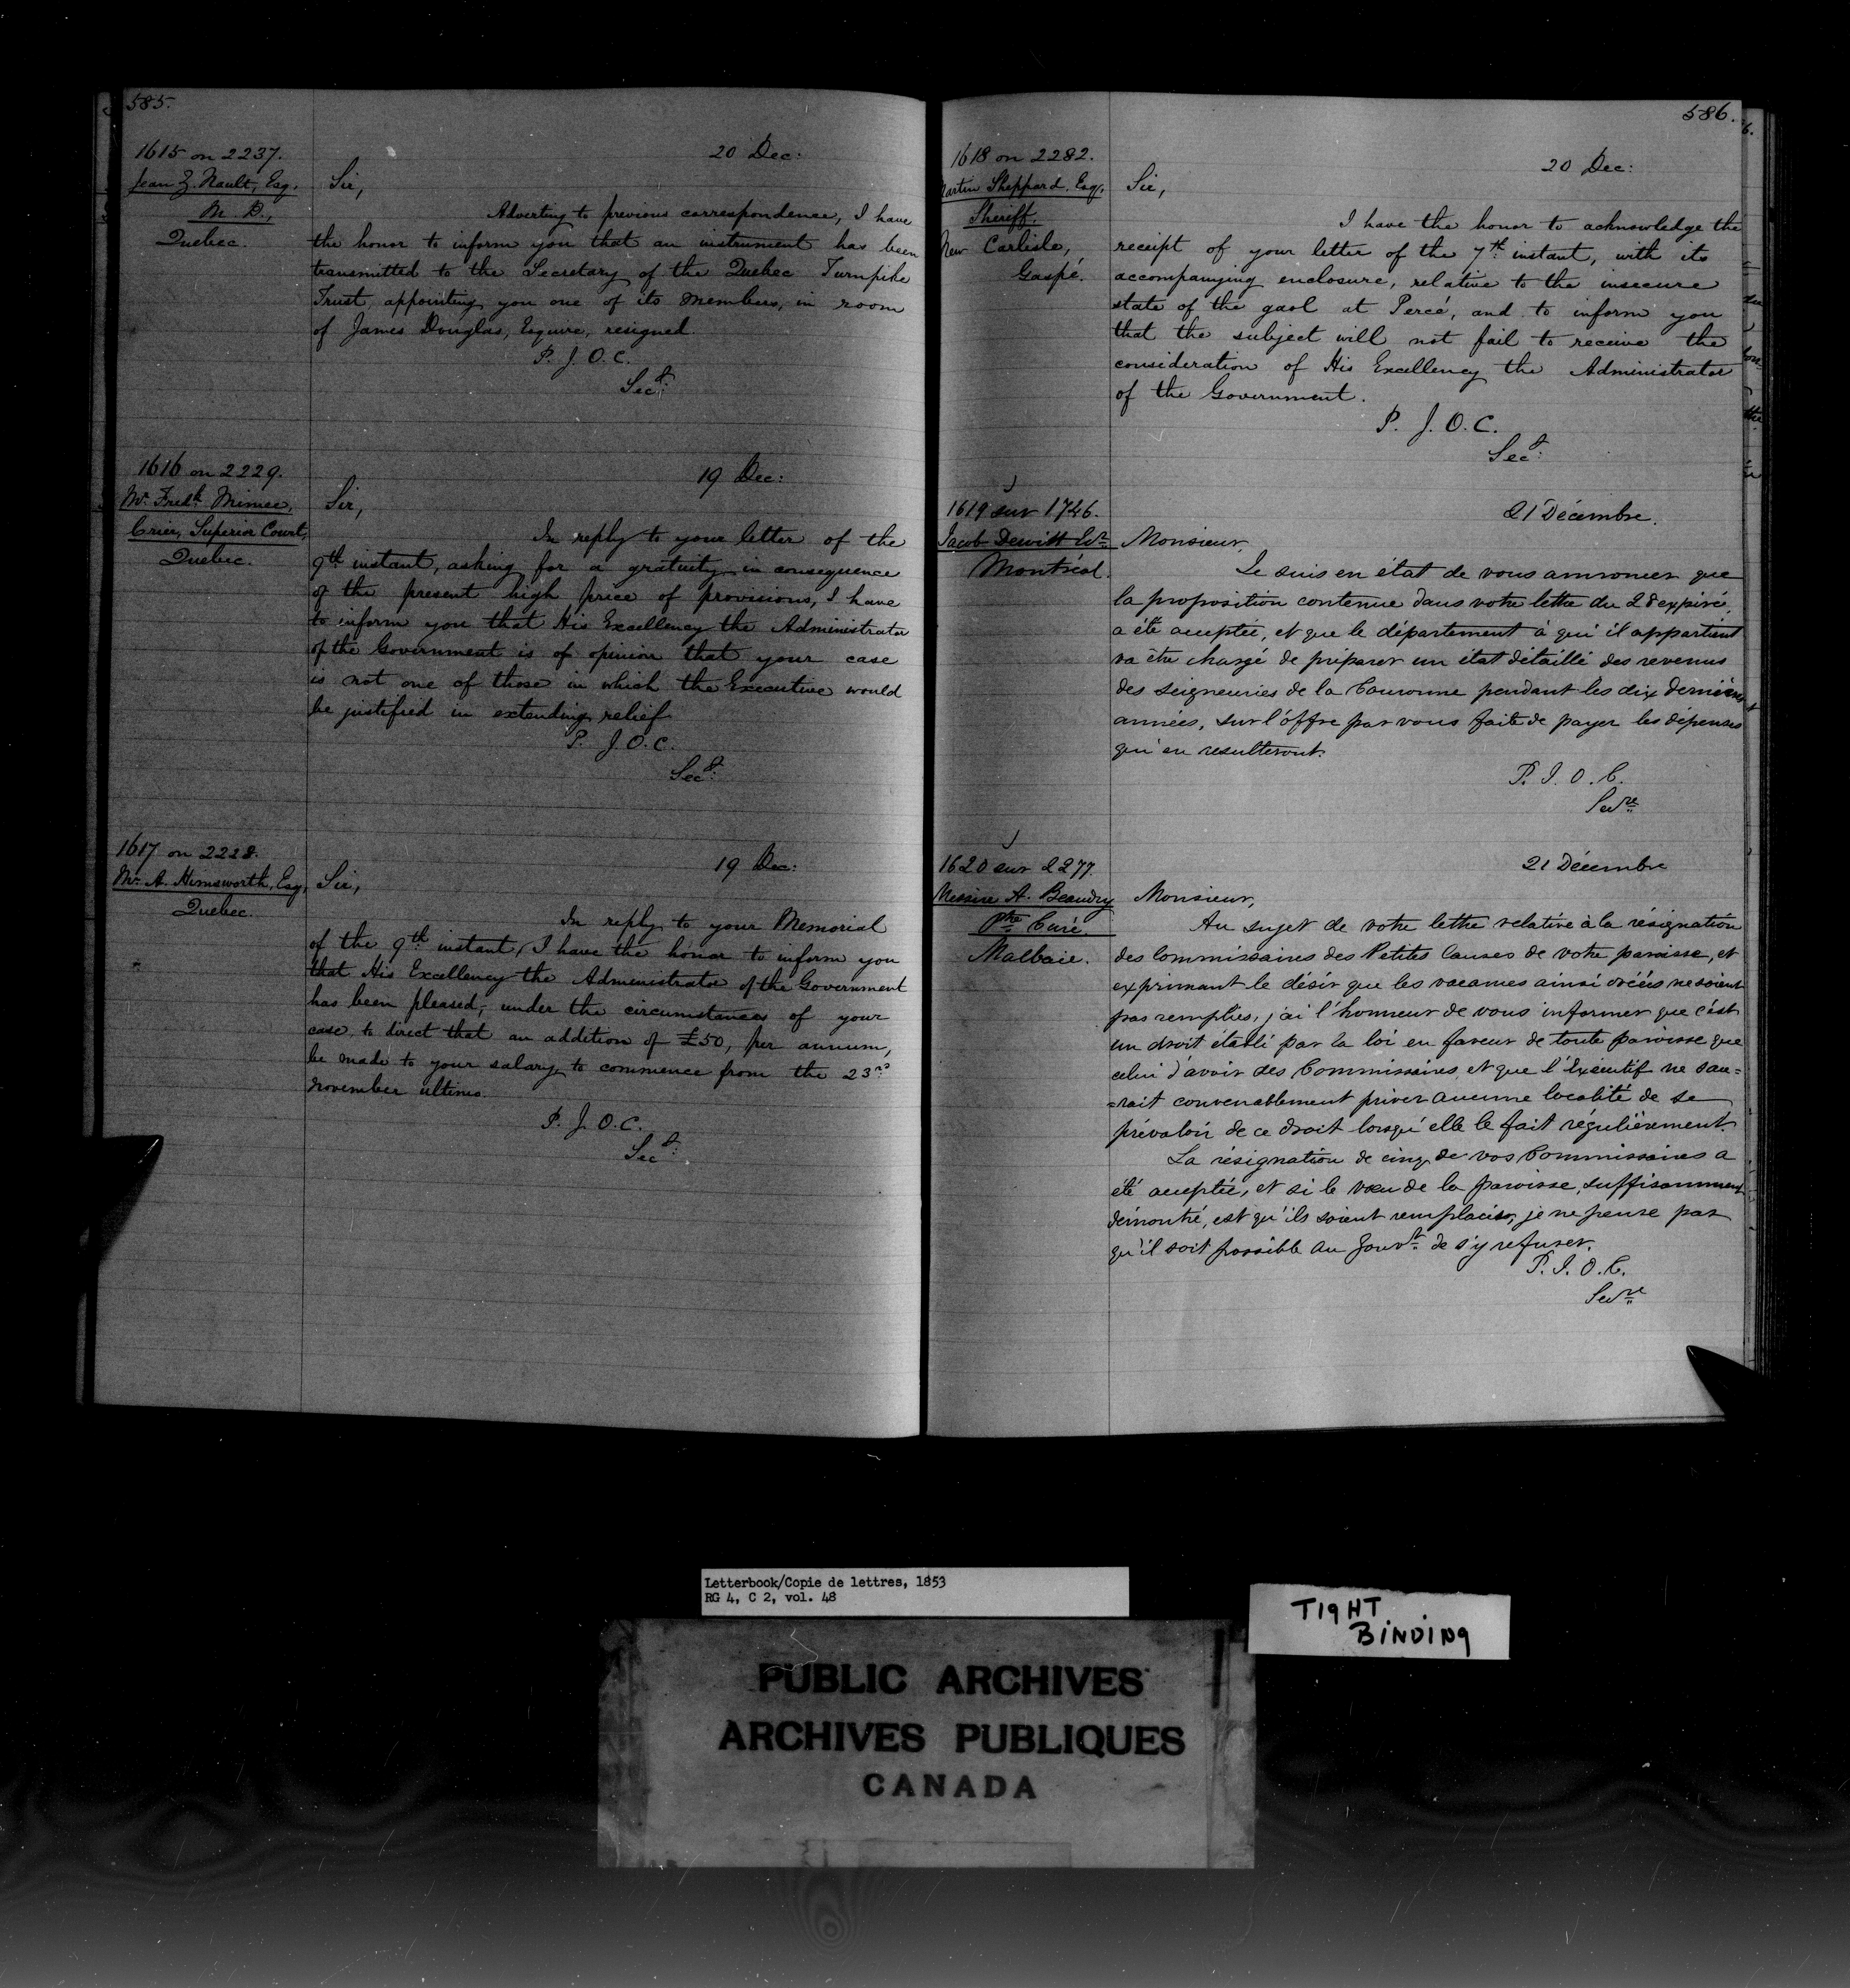 585.
1615 on 2237.
Jean Z. Nault, Esq.
M. D.,
Quebec.
20 Dec:
Sir,
Adverting to previous correspondence, I have
the honor to inform you that an instrument has been
transmitted to the Secretary of the Quebec Turnpike
Trust, appointing you one of its members, in room
of James Douglas, Esquire, resigned.
P. J. O. C.
Secy:
1616 on 2229.
Mr. Fredk. Mimee,
Crier, Superior Court,
Quebec.
19 Dec:
Sir,
In reply to your letter of the
9th instant, asking for a gratuity in consequence
of the present high price of provisions, I have
to inform you that His Excellency the Administrator
of the Government is of opinion that your case
is not one of those in which the Executive would
be justified in extending relief.
P. J. O. C.
Secy:
1617 on 2228.
Mr. A. Himsworth, Esq,
Quebec.
19 Dec:
Sir,
In reply to your Memorial
of the 9th instant, I have the honor to inform you
that His Excellency the Administrator of the Government
has been pleased, under the circumstances of your
case to direct that an addition of £50, per annum,
be made to your salary, to commence from the 23rd
November ultimo.
P. J. O. C.
Secy:
586.
1618 on 2282.
Martin Sheppard, Esq,
Sheriff.
New Carlisle,
Gaspé.
20 Dec:
Sir,
I have the honor to acknowledge the
receipt of your letter of the 7th instant, with its
accompanying enclosure, relative to the insecure
state of the gaol at Percé, and to inform you
that the subject will not fail to receive the
consideration of His Excellency the Administrator
of the Government.
P. J. O. C.
Secy:
1619 sur 1746.
Jacob Dewitt Ecr.
Montréal.
21 Décembre.
Monsieur,
Je suis en état de vous annoncer que
la proposition contenue dans votre lettre du 28 expiré,
a été acceptée, et que le département à qui il appartient
va être chargé de préparer un état détaillé des revenus
des seigneuries de la Couronne pendant les dix dernières
années, sur l'offre par vous faite de payer les dépenses
qui en resulteront.
P. J. O. C.
Secre
1620 sur 2277.
Messire A. Beaudry
Ptre Curé.
Malbaie.
21 Décembre
Monsieur,
Au sujet de votre lettre relative à la résignation
des Commissaires des Petites Causes de votre paroisse, et
exprimant le désir que les vacances ainsi créées ne soient
pas remplies, j'ai l'honneur de vous informer que c'est
un droit établi par la loi en faveur de toute paroisse que
celui d'avoir des Commissaires, et que l'Exécutif ne sau=
=rait convenablement priver aucune localité de se
prévaloir de ce droit lorsqu'elle le fait régulièrement.
La résignation de cinq de vos Commissaires a
été acceptée, et si le vœu de la paroisse, suffisamment
démontré, est qu'ils soient remplacés, je ne pense pas
qu'il soit possible au Gouvt. de s'y refuser.
P. J. O. C.
Secre
Letterbook/Copie de lettres, 1853
RG 4, C 2, vol. 48
TIGHT
BINDING
PUBLIC ARCHIVES
ARCHIVES PUBLIQUES
CANADA